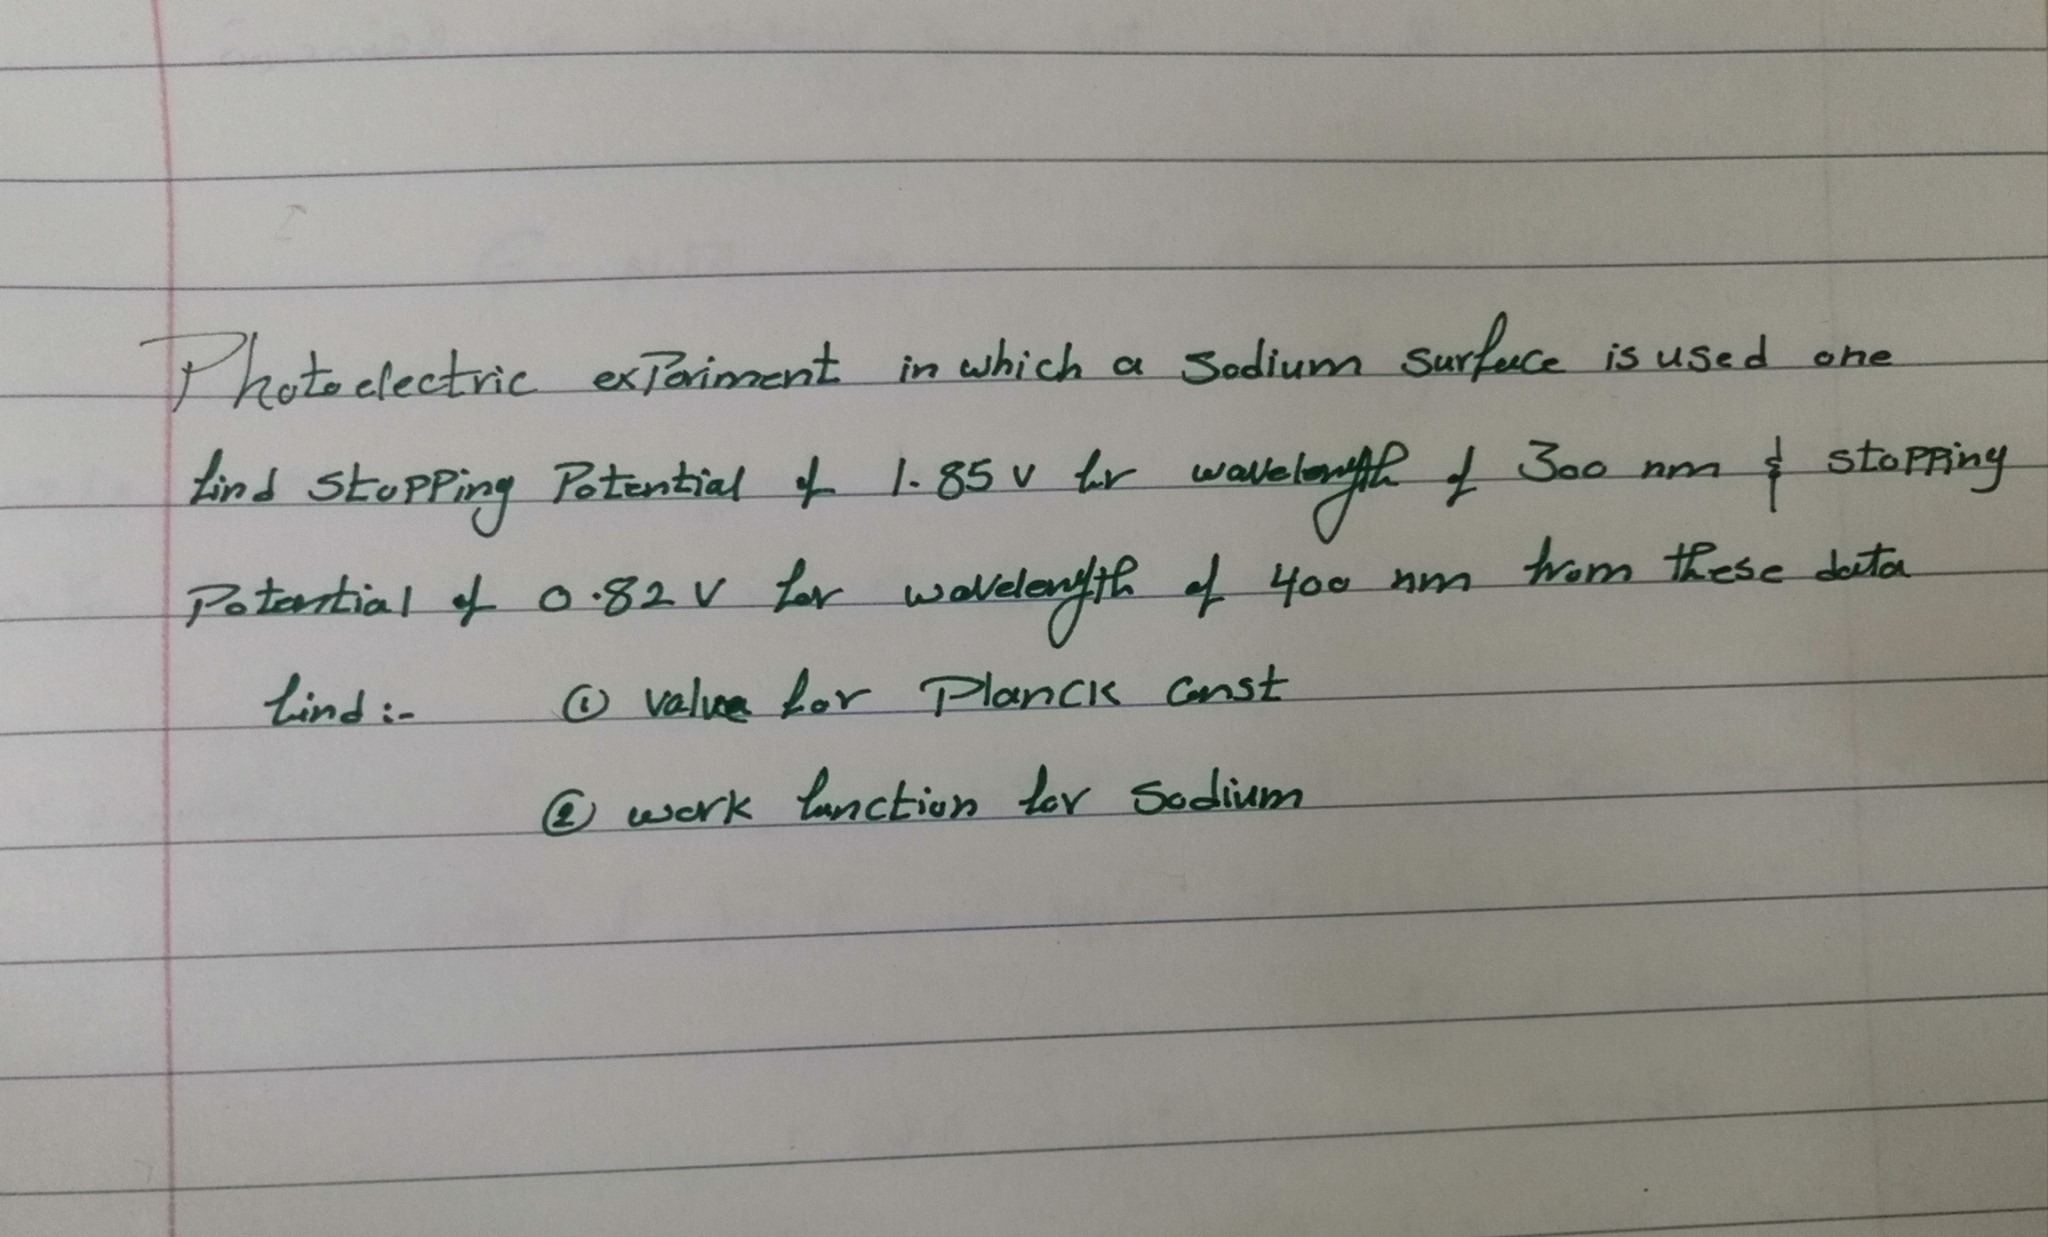 Photoelectric experiment in which a sodium surface is used one
find stopping Potential of 1.85 v for wavelength of 300 nm & stopping
Potential of 0.82 V for wavelength of 400 nm from these data
find :- ① value for Planck const
② work function for sodium